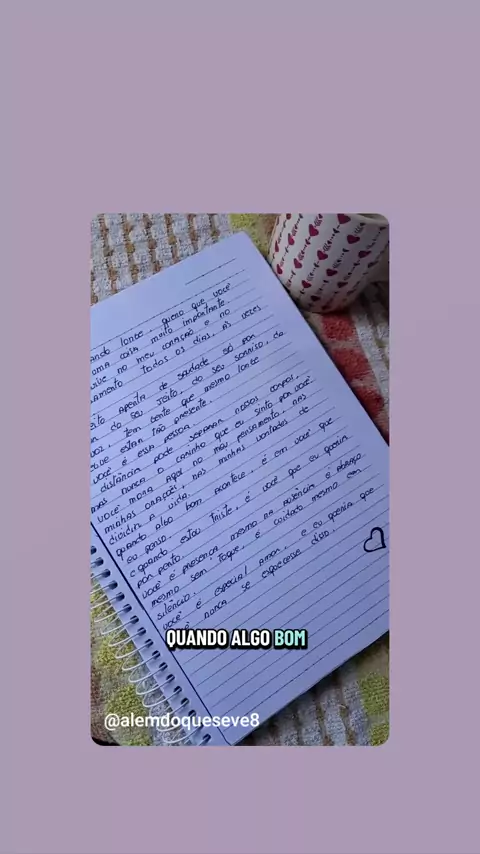 ando longe, quero que você
uma coisa muito importante.
no meu coração e no
samento todos os dias. Às vezes
peito aperta de saudade só por
do seu jeito do seu sorriso, da
voz. tem gente que mesmo longe
gue estar tão presente.
você é essa pessoa.
distância pode separar nossos corpos,
mas nunca o carinho que eu sinto por você.
você mora aqui no meu pensamento, nas
minhas orações, nas minhas vontades de
dividir a vida.
quando algo bom acontece, é em você que
eu penso.
e quando estou triste, é você que eu queria
por perto.
você é presença mesmo na ausência é abraço
mesmo sem toque, é cuidado mesmo em
silêncio.
você é especial amor, e eu queria que
nunca se esquecesse disso.
QUANDO ALGO BOM
@alemdoqueseve8